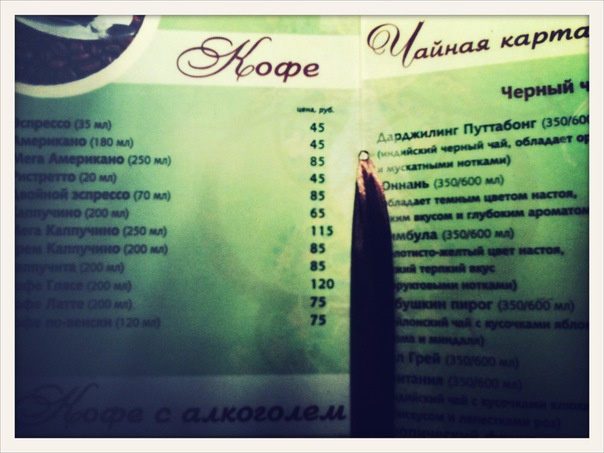 Кофе
цена, руб.
Эспрессо (35 мл) 45
Американо (180 мл) 45
Мега Американо (250 мл) 85
Ристретто (20 мл) 45
Двойной эспрессо (70 мл) 85
Каппучино (200 мл) 65
Мега Каппучино (250 мл) 115
Крем Каппучино (200 мл) 85
(200 мл) 85
Кофе Глясе (200 мл) 120
Кофе Латте (200 мл) 75
Кофе по-венски (120 мл) 75
Кофе с алкоголем
Чайная карта
Черный
Дарджилинг Путтабонг (350/600
(индийский черный чай, обладает
и мускатными нотками)
Юннань (350/600 мл)
обладает темным цветом настоя,
вкусом и глубоким ароматом
(350/600 мл)
золотисто-желтый цвет настоя,
терпкий вкус
фруктовыми нотками)
Бабушкин пирог (350/600 мл)
чай с кусочками
и миндаля)
Грей (350/600 мл)
(350/600 мл)
чай с кусочками
и лепестками роз)